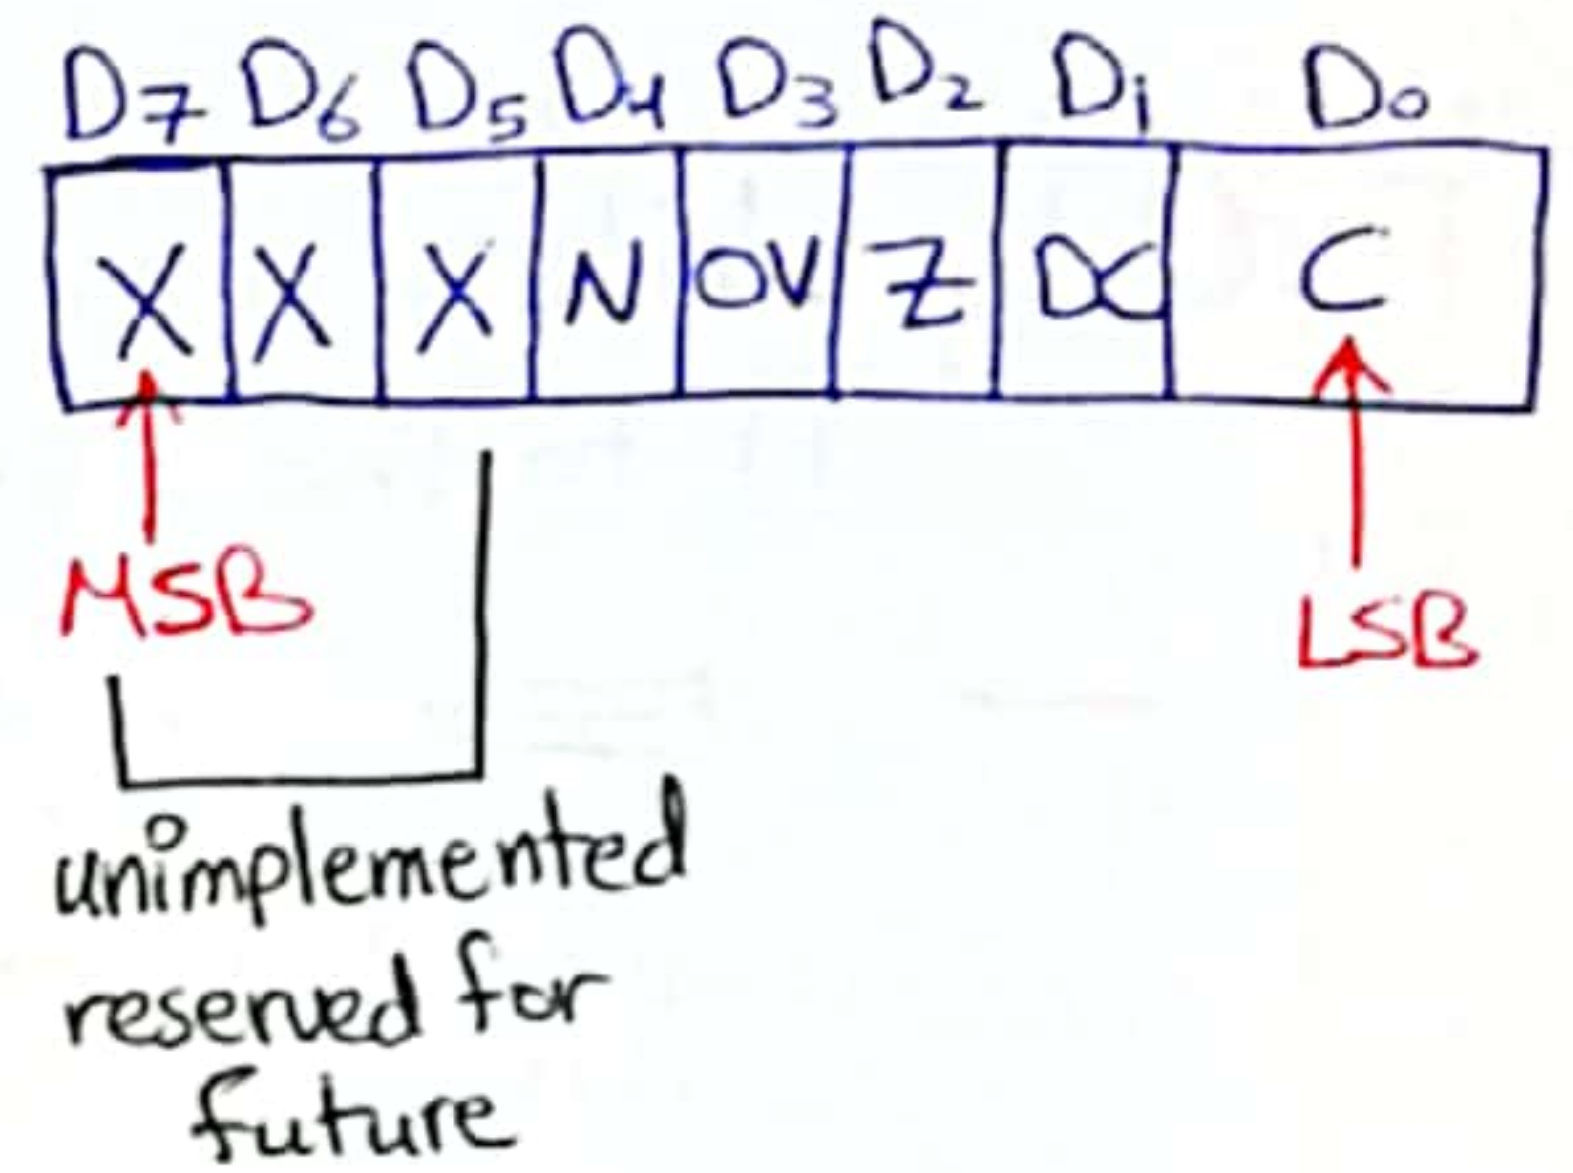 D7 D6 D5 D4 D3 D2 D1 D0
X X X N OV Z DC C
MSB
LSB
unimplemented
reserved for
future